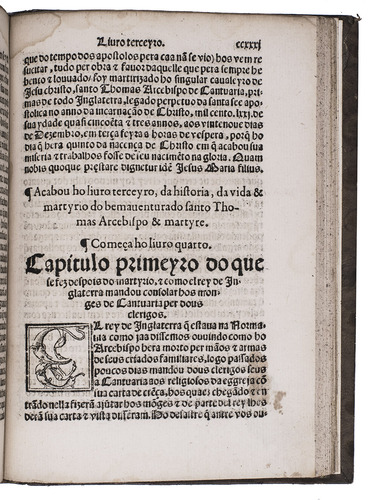 Liuro terceyro. ccxxxj
que do tempo dos apostolos pera caa nã se vio) hos vem re
sucitar, tudo per obra & fauor daquelle que pera sempre he
bento & louuado; foy martirizado ho singular caualeyro de
Jesu christo, santo Thomas Arcebispo de Cantuaria, pri
mas de todo Inglaterra, legado perpetuo da santa see apo
stolica no anno da incarnação de Christo, mil cento. lxxj. de
sua ydade quasi cincoẽta & tres annos, aos vinte noue dias
de Dezembro, em terça feyra a horas de vespera, porq̃ ho
dia q̃ hera quinto da nacença de Christo em q̃ acabou sua
miseria & trabalhos fosse de seu nacimẽto na gloria. Quam
nobis quoque prestare dignetur idẽ Jesus Maria filius.
¶ Acabou ho liuro terceyro, da historia, da vida &
martyrio do bemauenturado santo Tho-
mas Arcebispo & martyre.
¶ Começa ho liuro quarto.
Capitulo primeyro do que
se fez despois do martyrio, & como elrey de In-
glaterra mandou consolar hos mon-
ges de Cantuaria per dous
clerigos.
EL rey de Inglaterra q̃ estaua na Norma
nia como jaa dissemos ouuindo como ho
Arcebispo hera morto per mãos & armas
de seus criados familiares, logo passados
poucos dias mandou dous clerigos seus
a Cantuaria aos religiosos da egreja cõ
sua carta de crẽça, hos quaes chegãdo & en
trãdo nella fizerã ajũtar hos mõges & de parte del rey lhes
derã sua carta & vista disseram. Do desastre q̃ antre vos ou-